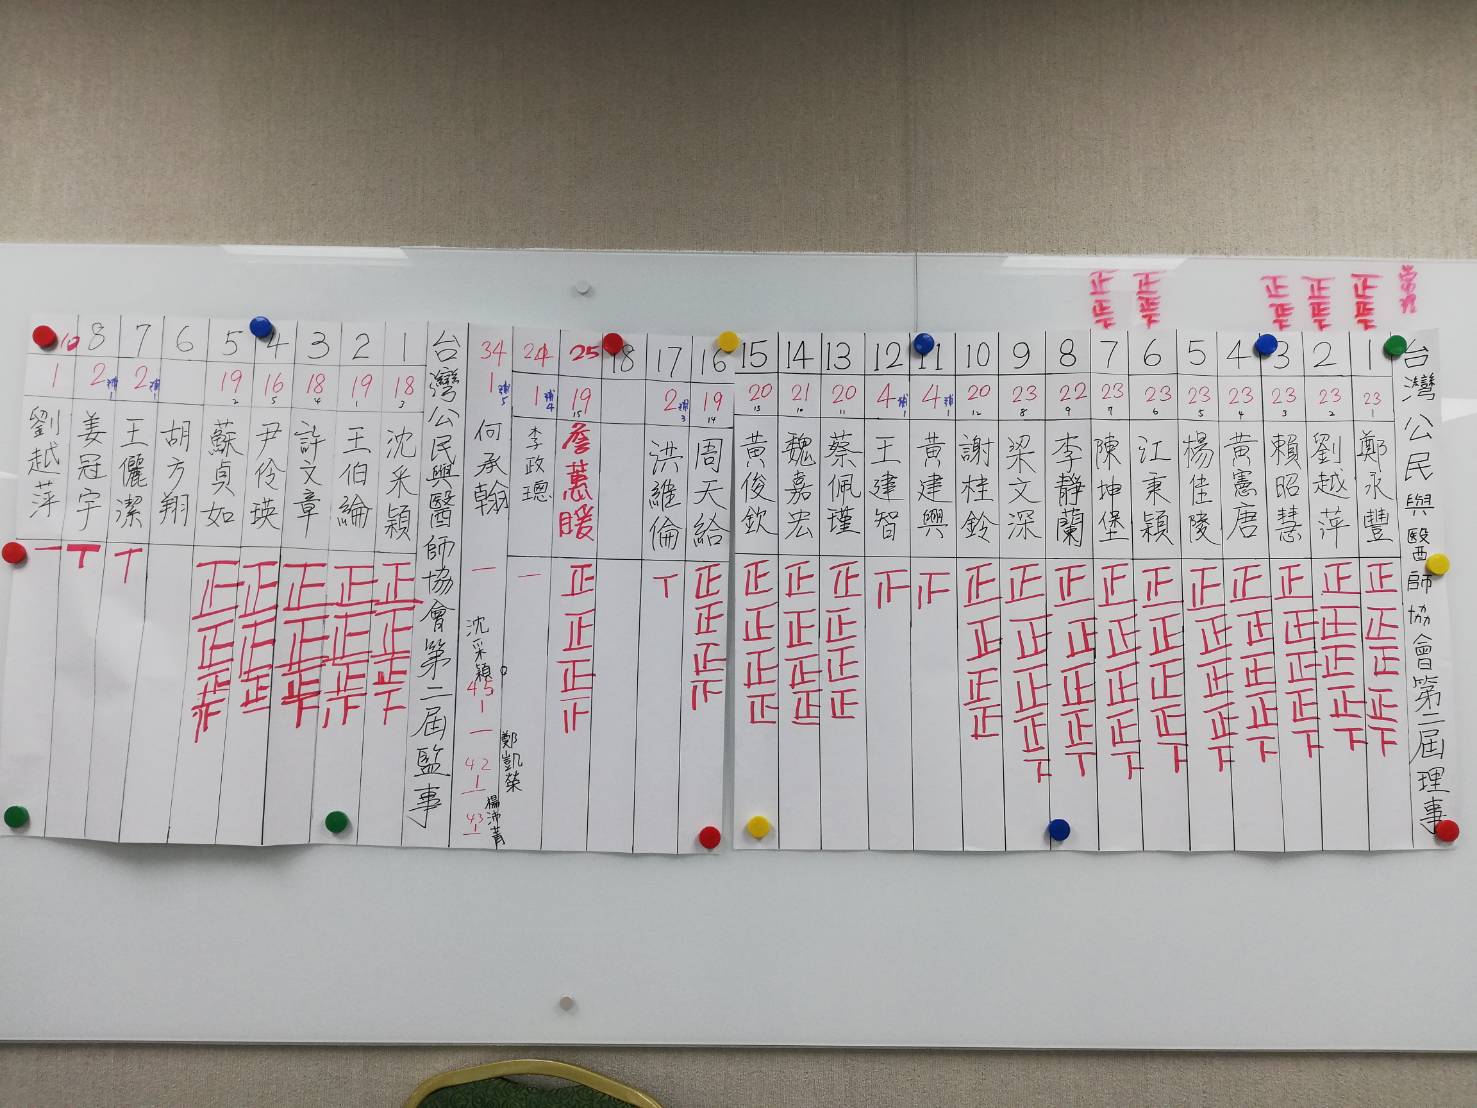 常理
正正下
正正下
正正下
正正下
正正下
台灣公民與醫師協會第二屆理事
1 23 1 鄭永豐 正正正正下
2 23 2 劉越萍 正正正正下
3 23 3 賴昭慧 正正正正下
4 23 4 黃憲唐 正正正正下
5 23 5 楊佳陵 正正正正下
6 23 6 江秉穎 正正正正下
7 23 7 陳坤堡 正正正正下
8 22 9 李靜蘭 正正正正下
9 23 8 梁文深 正正正正下
10 20 12 謝桂鈴 正正正正
11 4 補1 黃建興
12 4 補1 王建智
13 20 11 蔡佩瑾 正正正正
14 21 10 魏嘉宏 正正正正一
15 20 13 黃俊欽 正正正正
16 19 14 周天給 正正正
17 2 補3 洪維倫 丅
18
25 19 15 詹蕙暖 正正正
24 1 補4 李政璁 一
34 1 補5 何承翰 一
沈采穎
45 一
一
鄭凱榮
42 一
楊沛菁
43 一
台灣公民與醫師協會第二屆監事
1 18 3 沈采穎 正正正下
2 19 1 王伯綸 正正正
3 18 4 許文章 正正正下
4 16 5 尹伶瑛 正正正一
5 19 2 蘇貞如 正正正
6 胡方翔
7 2 補1 王儷潔 丅
8 2 補1 姜冠宇 丅
10 1 劉越萍 一